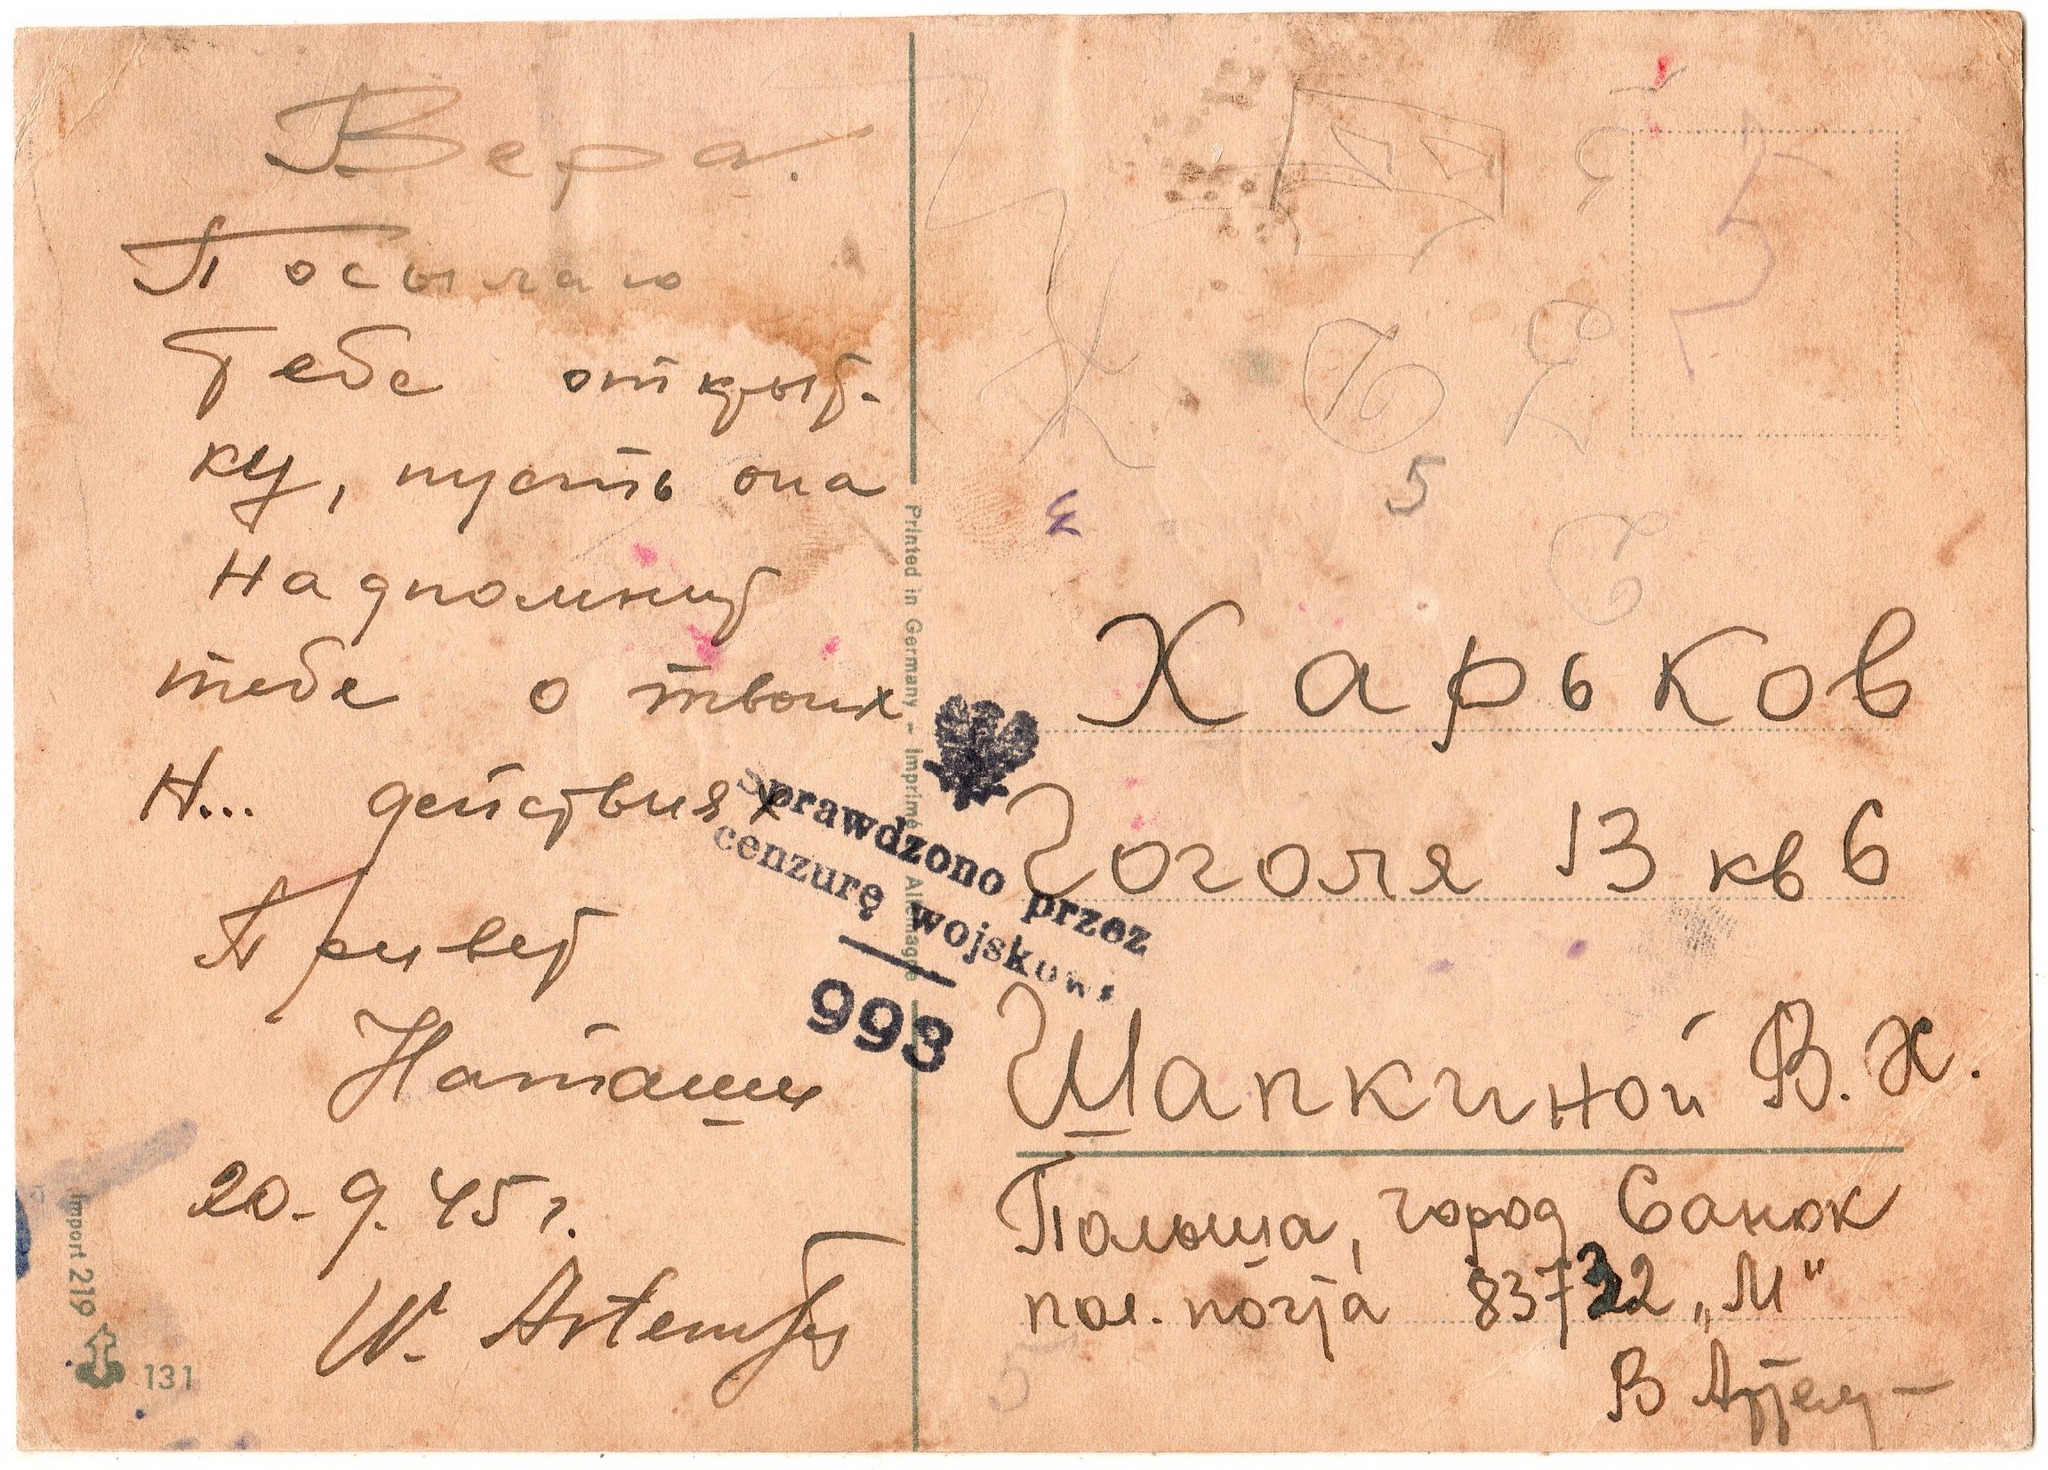 Вера.
Посылаю
Тебе открыт-
ку, пусть она
надпомнит
тебе о твоих
Н... действиях
Привет
Наташи
20. 9. 45 г.
W. Artem
Printed in Germany – Imprimé Allemagne
Import 219
131
Sprawdzono przez
cenzurę wojskową
993
5
Харьков
Гоголя 13 кв 6
Шапкиной В. Х.
Польша, город Санок
пол. почта 83732 „М"
В Артем